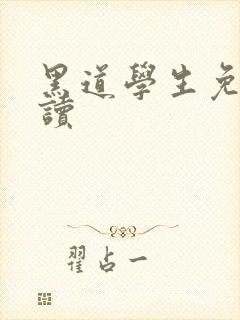 黑道學生免
讀
翟占一